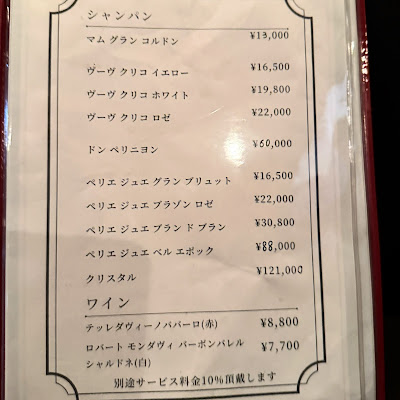 シャンパン
マム グラン コルドン ¥13,000
ヴーヴ クリコ イエロー ¥16,500
ヴーヴ クリコ ホワイト ¥19,800
ヴーヴ クリコ ロゼ ¥22,000
ドン ペリニヨン ¥60,000
ペリエ ジュエ グラン ブリュット ¥16,500
ペリエ ジュエ ブラゾン ロゼ ¥22,000
ペリエ ジュエ ブラン ド ブラン ¥30,800
ペリエ ジュエ ベル エポック ¥88,000
クリスタル ¥121,000
ワイン
テッレダヴィーノパパーロ(赤) ¥8,800
ロバート モンダヴィ バーボンバレル ¥7,700
シャルドネ(白)
別途サービス料金10%頂戴します